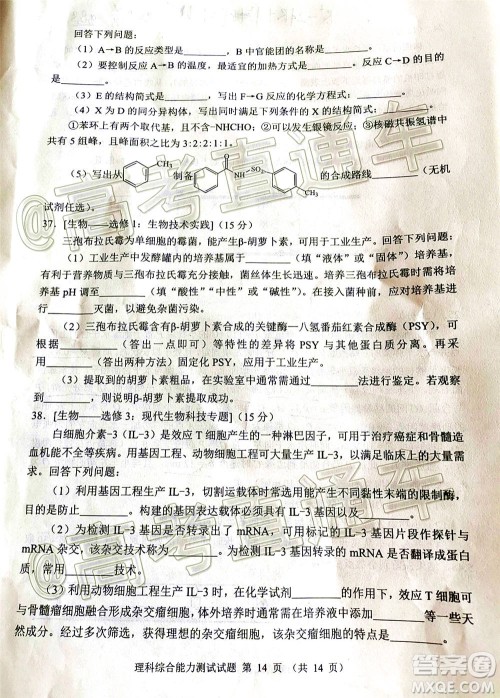 回答下列问题：
（1）A→B的反应类型是________，B中官能团的名称是________。
（2）要控制反应A→B的温度，最适宜的加热方式是________，反应C→D的目的是________。
（3）E的结构简式是________，写出F→G反应的化学方程式：________。
（4）X为D的同分异构体，写出同时满足下列条件的X的结构简式：________。
①苯环上有两个取代基，且不含-NHCHO；②可以发生银镜反应；③核磁共振氢谱中
共有5组峰，且峰面积之比为3:2:2:1:1。
（5）写出从 CH₃ 制备 O NH SO₂ CH₃ 的合成路线________（无机
试剂任选）。
37. [生物——选修1：生物技术实践]（15分）
三孢布拉氏霉为单细胞的霉菌，能产生β-胡萝卜素，可用于工业生产。回答下列问题：
（1）工业生产中发酵罐内的培养基属于________（填“液体”或“固体”）培养基，有
利于营养物质与三孢布拉氏霉充分接触，大量生产菌体。培养三孢布拉氏霉时需将培养
基pH调至________（填“酸性”“中性”或“碱性”），培养基应在接种________（填“前”或
________灭菌，以免杂菌污染。
（2）三孢布拉氏霉含有β-胡萝卜素合成的关键酶—八氢番茄红素合成酶（PSY），可
根据________（答出一点即可）等特性的差异将PSY与其他蛋白质分离。再采
用________（答出两种方法）固定PSY，应用于工业生产。
（3）提取到的胡萝卜素粗品，在实验室中通常通过________法进行鉴定。若观察
到________，则说明β-胡萝卜素提取成功。
38. [生物——选修3：现代生物科技专题]（15分）
白细胞介素-3（IL-3）是效应T细胞产生的一种淋巴因子，可用于治疗癌症和骨髓造
血机能不全等疾病。用基因工程、动物细胞工程可大量生产IL-3，以满足临床上的大量需
求。回答下列问题：
（1）利用基因工程生产IL-3时，通常选择两种能产生不同黏性末端的限制酶，
目的是________。
（2）为检测IL-3基因是否转录出了mRNA，需要用标记的IL-3基因片段作探针与
mRNA杂交，该杂交技术称为________。为检测IL-3基因转录的mRNA是否翻译成蛋白
质，常用________技术。
（3）利用动物细胞工程生产IL-3时，在化学试剂________的作用下，效应T细胞可
与骨髓瘤细胞融合形成杂交瘤细胞，体外培养时通常需要在培养液中添加________等一些天
然成分。经多次筛选获得的杂交瘤细胞的特点是________。
理科综合能力测试试题 第14页（共14页）
@高考直通车